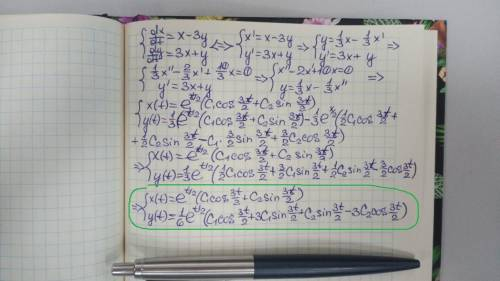 {dx/dt = x-3y, dy/dt = 3x+y <=> {x' = x-3y, y' = 3x+y => {y = 1/3 x - 1/3 x', y' = 3x+y =>
{1/3 x'' - 2/3 x' + 10/3 x = 0, y' = 3x+y => {x'-2x+10x=0, y = 1/3 x - 1/3 x'' =>
{x(t) = e^(t/2) (C₁cos 3t/2 + C₂sin 3t/2)
y(t) = 1/3 (e^(t/2) (C₁cos 3t/2 + C₂sin 3t/2) - 1/3 e^(t/2) (1/2 C₁cos 3t/2 +
+ 1/2 C₂sin 3t/2 - C₁ · 3/2 sin 3t/2 + 3/2 C₂cos 3t/2)
=> {x(t) = e^(t/2) (C₁cos 3t/2 + C₂sin 3t/2)
y(t) = 1/3 e^(t/2) (1/2 C₁cos 3t/2 + 3/2 C₁sin 3t/2 + 1/2 C₂sin 3t/2 - 3/2 cos 3t/2)
=> {x(t) = e^(t/2) (C₁cos 3t/2 + C₂sin 3t/2)
y(t) = 1/6 e^(t/2) (C₁cos 3t/2 + 3C₁sin 3t/2 + C₂sin 3t/2 - 3C₂cos 3t/2)